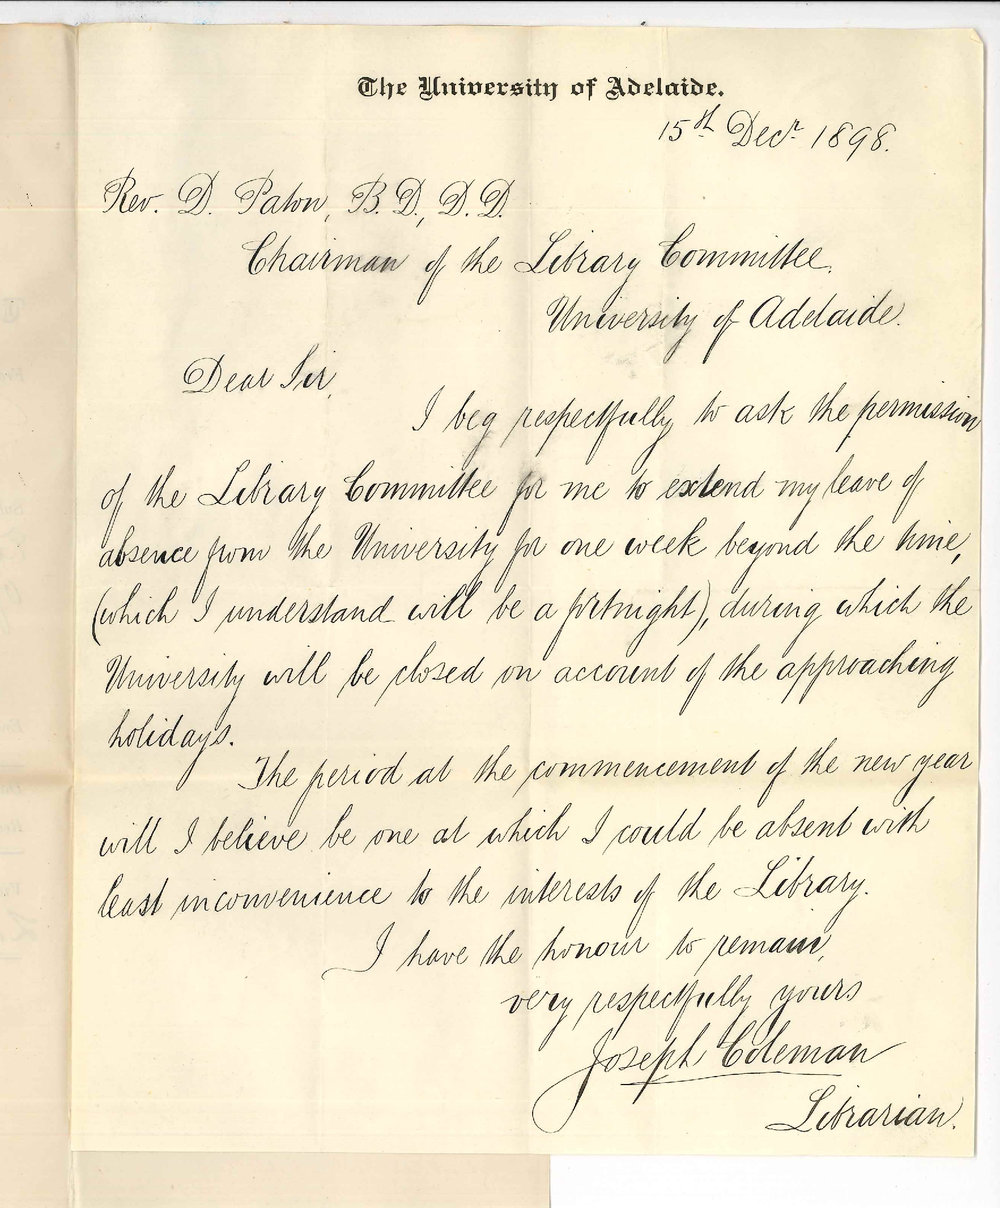 The University of Adelaide.
15th Decr 1898.
Rev. D. Paton, B.D., D.D.
Chairman of the Library Committee,
University of Adelaide.
Dear Sir,
I beg respectfully to ask the permission
of the Library Committee for me to extend my leave of
absence from the University for one week beyond the time,
(which I understand will be a fortnight), during which the
University will be closed on account of the approaching
holidays.
The period at the commencement of the new year
will I believe be one at which I could be absent with
least inconvenience to the interests of the Library.
I have the honour to remain,
very respectfully yours
Joseph Coleman
Librarian.